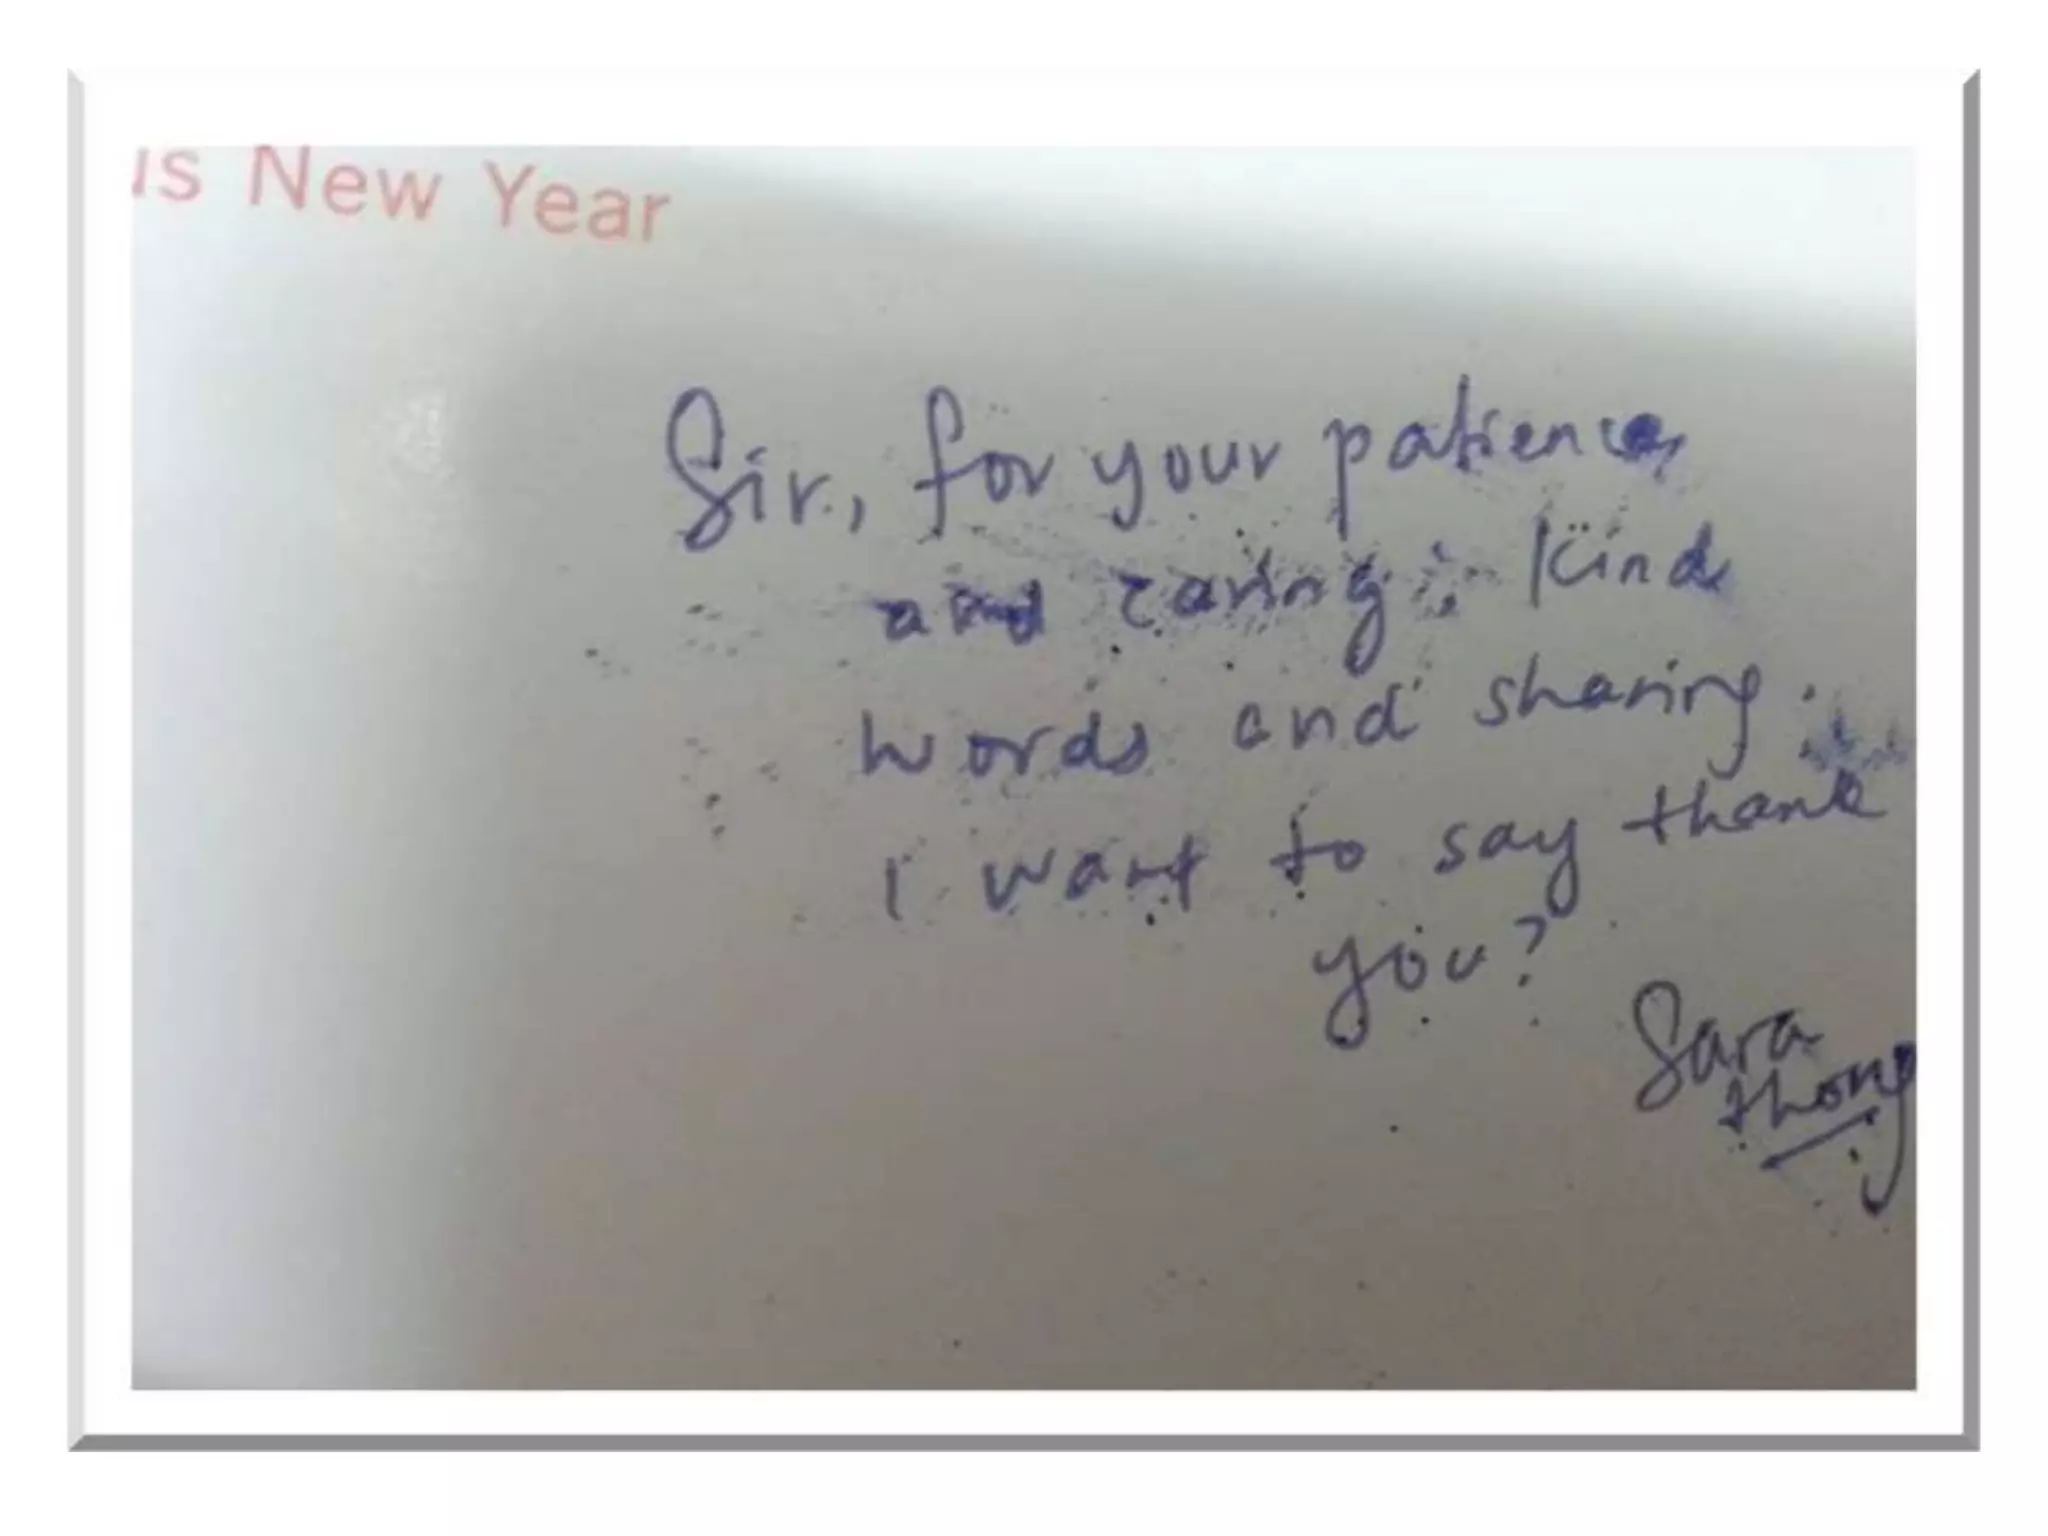 is New Year
Sir, for your patience
and caring; kind
words and sharing.
I want to say thank
you?
Sara
thong